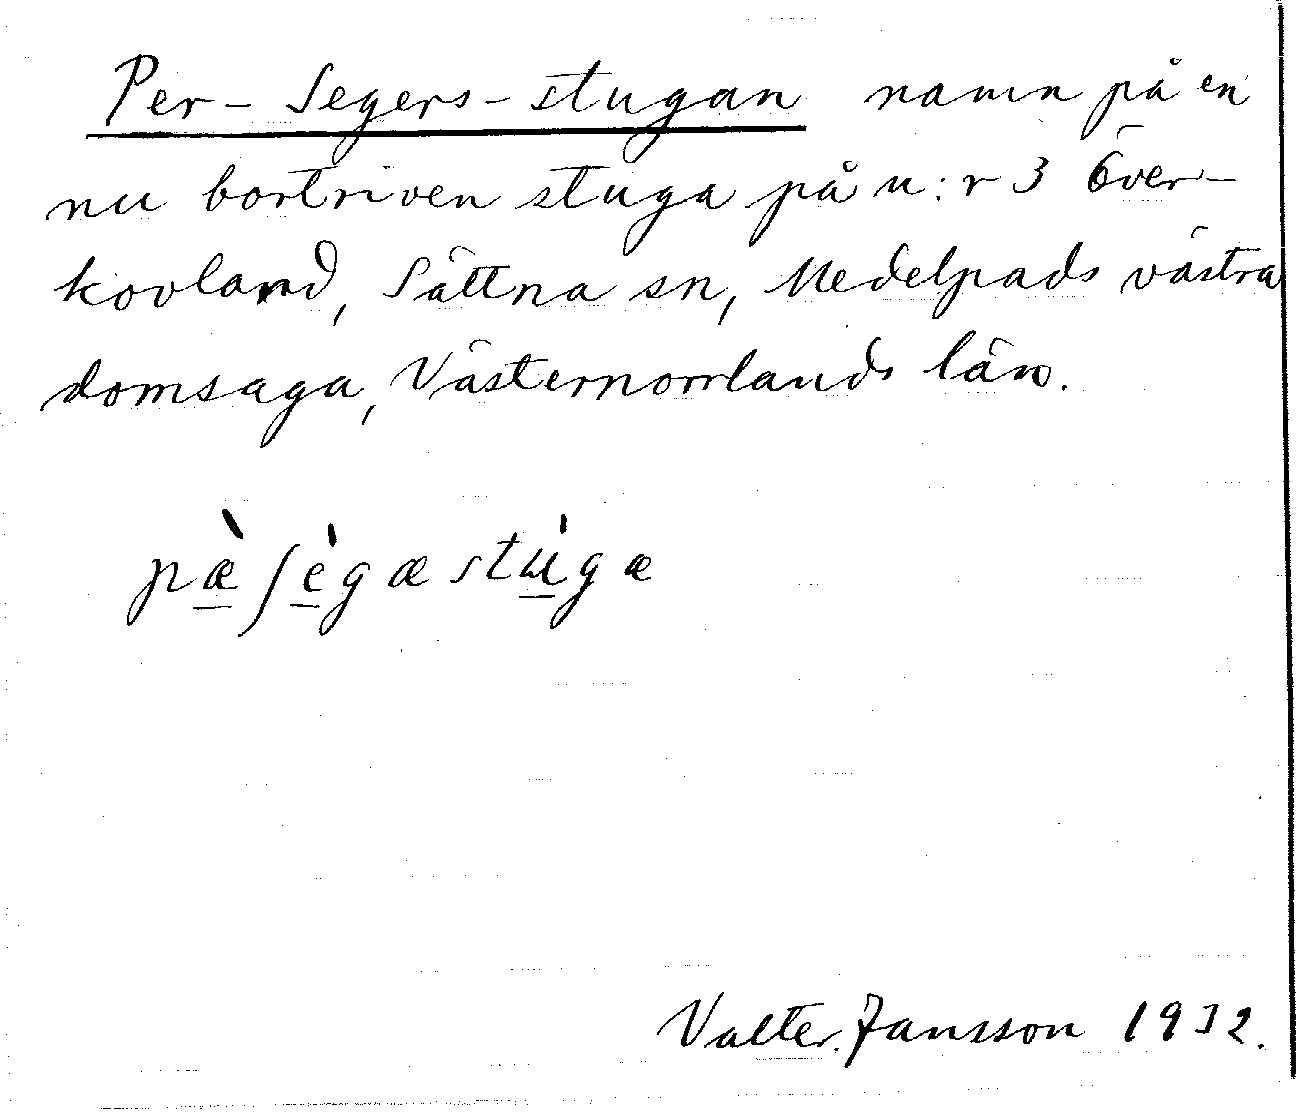 Per-Segers-stugan namn på en
nu bortriven stuga på n:r 3 Över-
kovland, Sättna sn, Medelpads västra
domsaga, Västernorrlands län.
pæ̀ſègæstùgæ
Valter Jansson 1932.